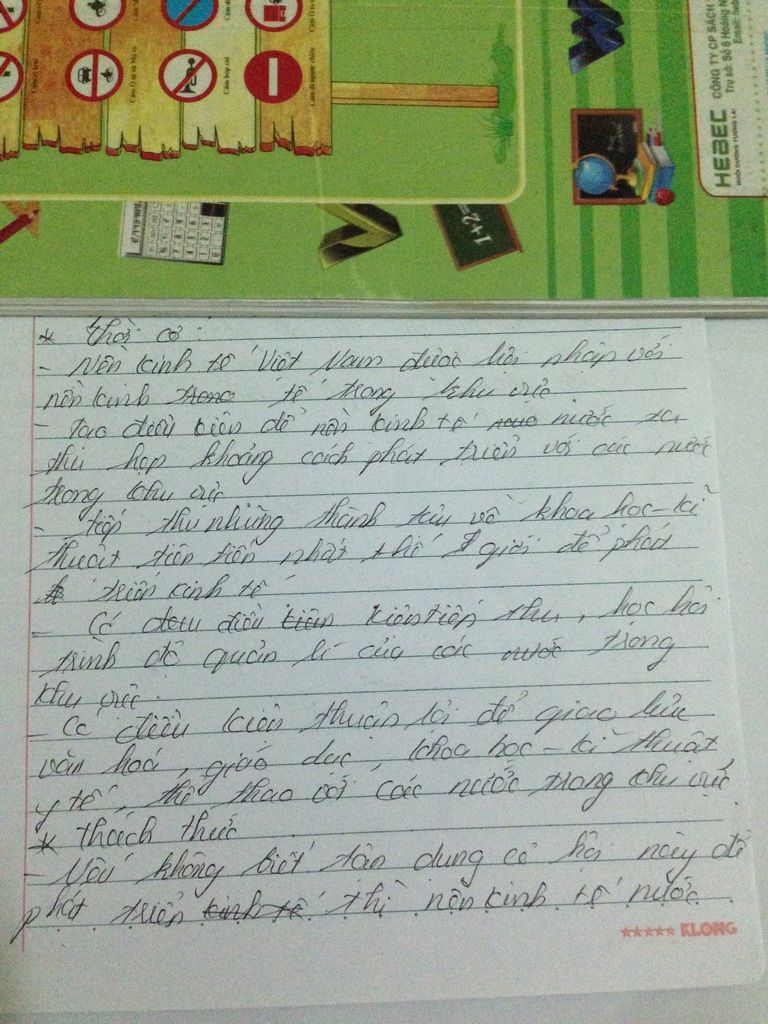 Cấm đi ngược chiều
HEBEC
NUÔI DƯỠNG TƯƠNG LAI
CÔNG TY CP SÁCH
Trụ sở: Số 6 Hoàng
Email:
1+2=
* Thời cơ:
- Nền kinh tế Việt Nam được hội nhập với
nền kinh trong tế trong khu vực
- Tạo điều kiện để nền kinh tế nước ta
thu hẹp khoảng cách phát triển với các nước
trong khu vực
- Tiếp thu những thành tựu về khoa học - kĩ
thuật tiên tiến nhất thế giới để phát
triển kinh tế
- Có điều kiện kiện tiếp thu, học hỏi
trình độ quản lí của các nước trong
khu vực.
- Có điều kiện thuận lợi để giao lưu
văn hoá, giáo dục, khoa học - kĩ thuật
y tế, thể thao với các nước trong khu vực
* Thách thức
- Nếu không biết tận dụng cơ hội này để
phát triển kinh tế thì nền kinh tế nước
KLONG